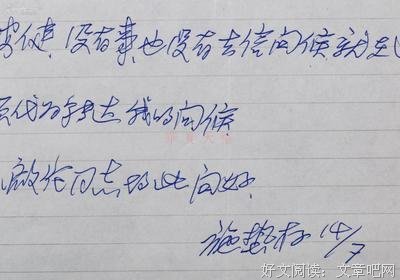 健，没有事，也没有去信问候，就
代为转达 我的问候
同志均此问好。
施蛰存 14/7
好文阅读：文章吧网